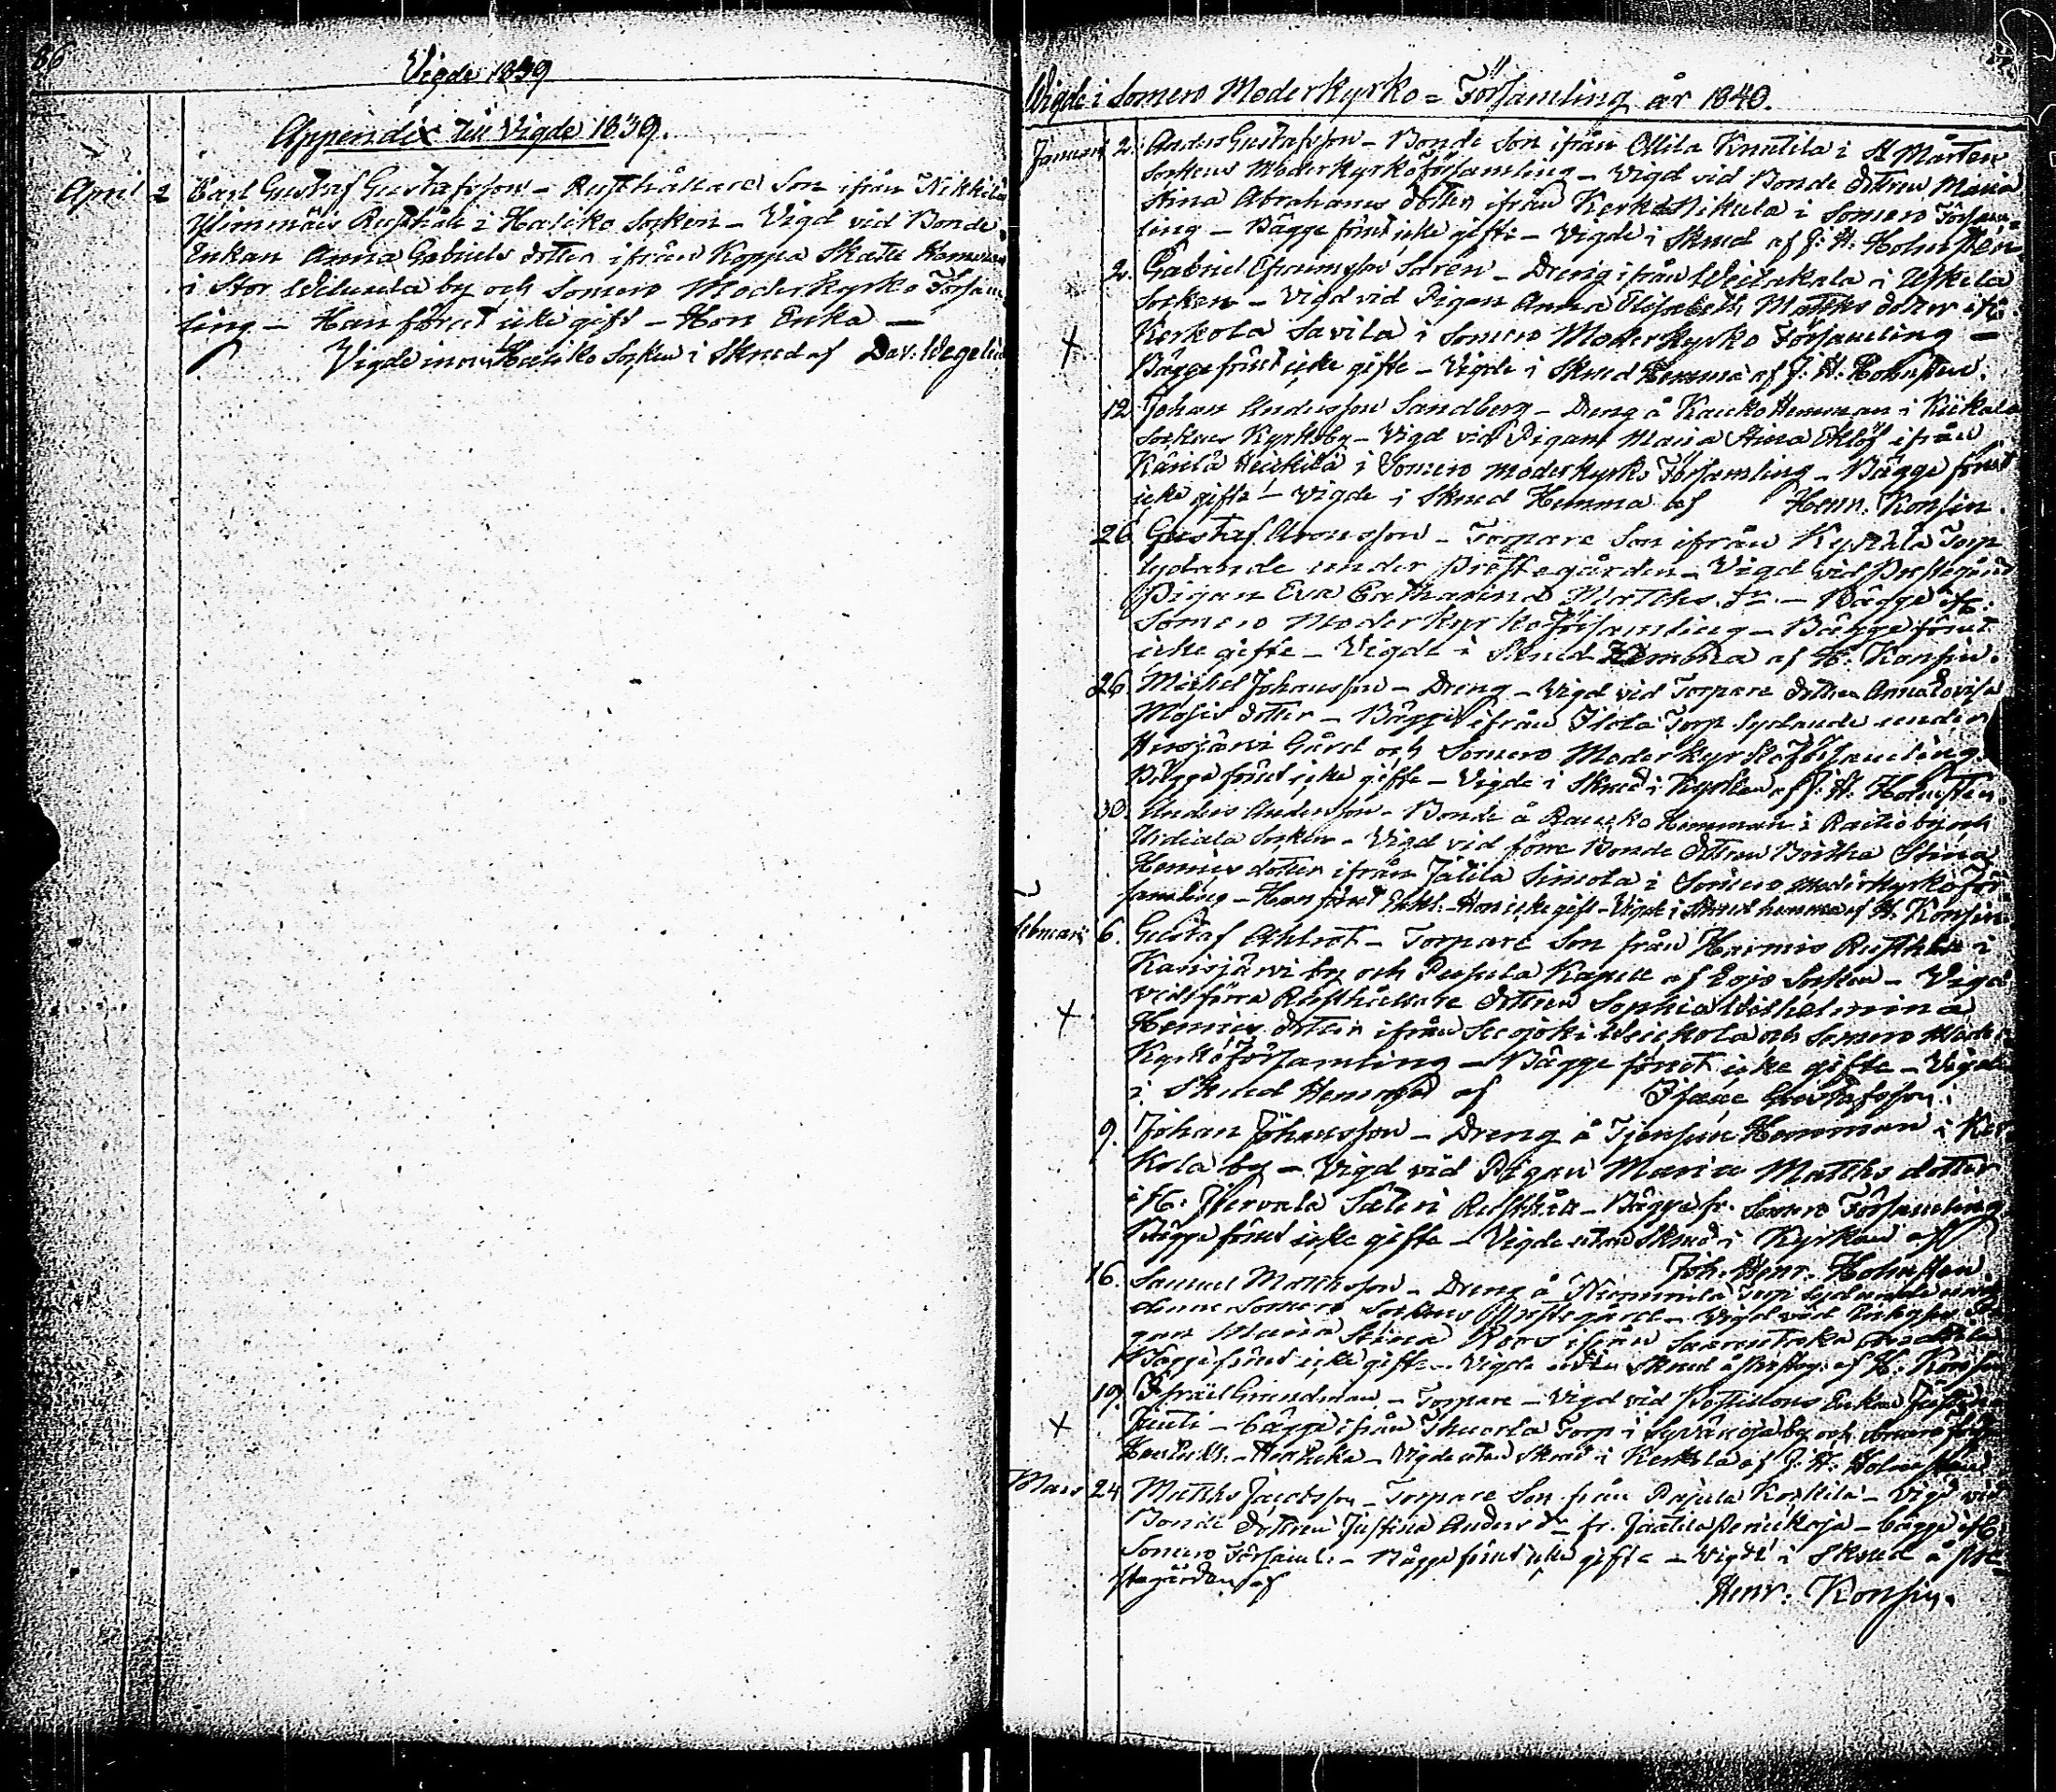 86
Vigde 1839
Appendix till Vigde 1839.
April 2 Carl Gustaf Gustafsson - Rusthållare Son ifrån Nikkilä
Rusthåll i Haliko Socken - Vigd vid Bonde
Enkan Anna Gabriels dotter ifrån Koppa Skatte Hemman
i Stor by och Somero Moderkyrko Försam
ling - Han förut icke gift - Hon Enka -
Vigde inom Haliko Socken i Skrud af Dav. Wegelius
Wigde i Somero Moderkyrko = Församling år 1840.
Januari 2. Anders Gustafsson - Bonde Son ifrån Ollila Knutila i St Mårtens
Sockens Moderkyrkoförsamling - Vigd vid Bonde dottren Maria
Stina Abrahams dotter ifrån Kerkola Nikula i Somero Försam=
ling - Bägge förut icke gifte - Vigde i Skrud af J. H. Holmsten
2. Gabriel Efraimsson - Dreng ifrån i Uskela
Socken - Vigd vid Pigan Anna Elisabeth Matths dotter ifr.
X Kerkola Savila i Somero Moderkyrko Församling -
Bägge förut icke gifte - Vigde i Skrud Hemma af J. H. Holmsten.
12. Johan Andersson Sandberg - Dreng å Kauko Hemman i Kiikala
Sockens Kyrkoby - Vigd vid Pigan Maria Stina Eklöf ifrån
Heikkilä i Somero Moderkyrko Församling - Bägge förut
icke gifte - Vigde i Skrud Hemma af Henr. Konsin.
26 Gustaf Aronsson - Torpare Son ifrån Torp
lydande under Prestegården - Vigd vid Prestegårds
Pigan Eva Catharina Matths dr - Bägge ifr.
Somero Moderkyrko Församling - Bägge förut
icke gifte - Vigde i Skrud Hemma af H. Konsin.
26. Michel Johansson - Dreng - Vigd vid Torpare dottren Anna Lovisa
Mosis dotter - Bägge ifrån Torp lydande under
Hirsjärvi Gård och Somero Moderkyrkoförsamling.
Bägge förut icke gifte - Vigde i Skrud i Kyrkan af J. H. Holmsten.
30. Anders Andersson - Bonde å Hemman i by och
Socken - Vigd vid förre Bonde dottren Britha Stina
Henrics dotter ifrån Jätilä Simola i Somero Moderkyrkoför
samling - Han förut Enkl. - Hon icke gift - Vigde i Skrud hemma af H. Konsin
Februari 6. Gustaf Ahlrot - Torpare Son från Rusthåll i
by och Pusula Kapell af Lojo Socken - Vigd
vid förra Rusthållare dottren Sophia Wilhelmina
X Henrics dotter ifrån och Somero Moder
Kyrkoförsamling - Bägge förut icke gifte - Vigde
i Skrud Hemma af Isaac Gustafsson.
9. Johan Johansson - Dreng å Hemman i Ker
kola by - Vigd vid Pigan Maria Matths dotter
ifr. Säteri Rusthåll - Bägge fr. Somero Församling
Bägge förut icke gifte - Vigde utan Skrud i Kyrkan af
Joh. Henr. Holmsten
16. Samuel Mattsson - Dreng å Torp lydande under
denne Somero Sockens Prestegård - Vigd vid Pi
gan Maria Stina ifrån
Bägge förut icke gifte - Vigde utan Skrud å Presteg. af H. Konsin
19. Israel Grundman - Torpare - Vigd vid Enkan
X - bägge ifrån Torp i by och Somero
- Vigde utan Skrud i Kerkola af J. H. Holmsten
Mars 24. Matths Jacobsson - Torpare Son från Pajula Koskila - Vigd vid
Bonde dottren Justina Anders dr fr. Jaatila - bägge ifr.
Somero Församl. - Bägge förut icke gifte - Vigde i Skrud å Pre=
stegården af
Henr. Konsin.